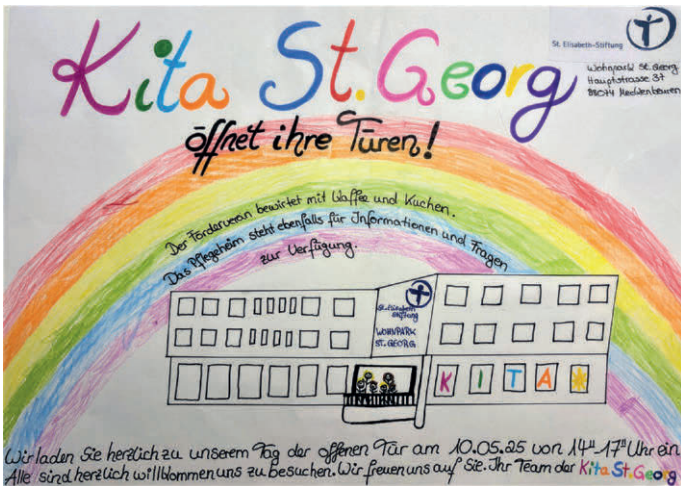 Kita St. Georg
öffnet ihre Türen!
St. Elisabeth-Stiftung
Wohnpark St. Georg
Hauptstrasse 37
88074 Meckenbeuren
Der Förderverein bewirtet mit Kaffee und Kuchen.
Das Pflegeheim steht ebenfalls für Informationen und Fragen
zur Verfügung.
St. Elisabeth
Stiftung
WOHNPARK
ST. GEORG
KITA
Wir laden Sie herzlich zu unserem Tag der offenen Tür am 10.05.25 von 14⁰⁰-17⁰⁰ Uhr ein
Alle sind herzlich willkommen uns zu besuchen. Wir freuen uns auf Sie. Ihr Team der Kita St. Georg